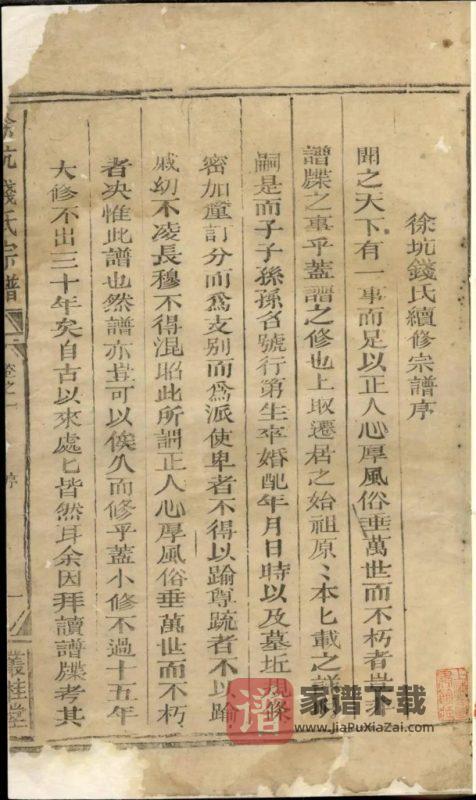 徐坑錢氏續修宗譜序
聞之天下有一事而足以正人心厚風俗垂萬世而不朽者豈非
譜牒之事乎蓋譜之修也上取遷居之始祖原〻本匕載之詳
嗣是而子子孫孫名號行第生卒婚配年月日時以及墓坵規條
密加釐訂分而為支別而為派使卑者不得以踰尊疏者不以踰
戚幼不凌長穆不得混昭此所謂正人心厚風俗垂萬世而不朽
者决惟此譜也然譜亦豈可以俟久而修乎蓋小修不過十五年
大修不出三十年矣自古以來處匕皆然耳余因拜讀譜牒考其
徐坑錢氏宗譜
卷之一
序
一
叢桂堂
譜
家谱下载
www.JiaPuXiaZai.com